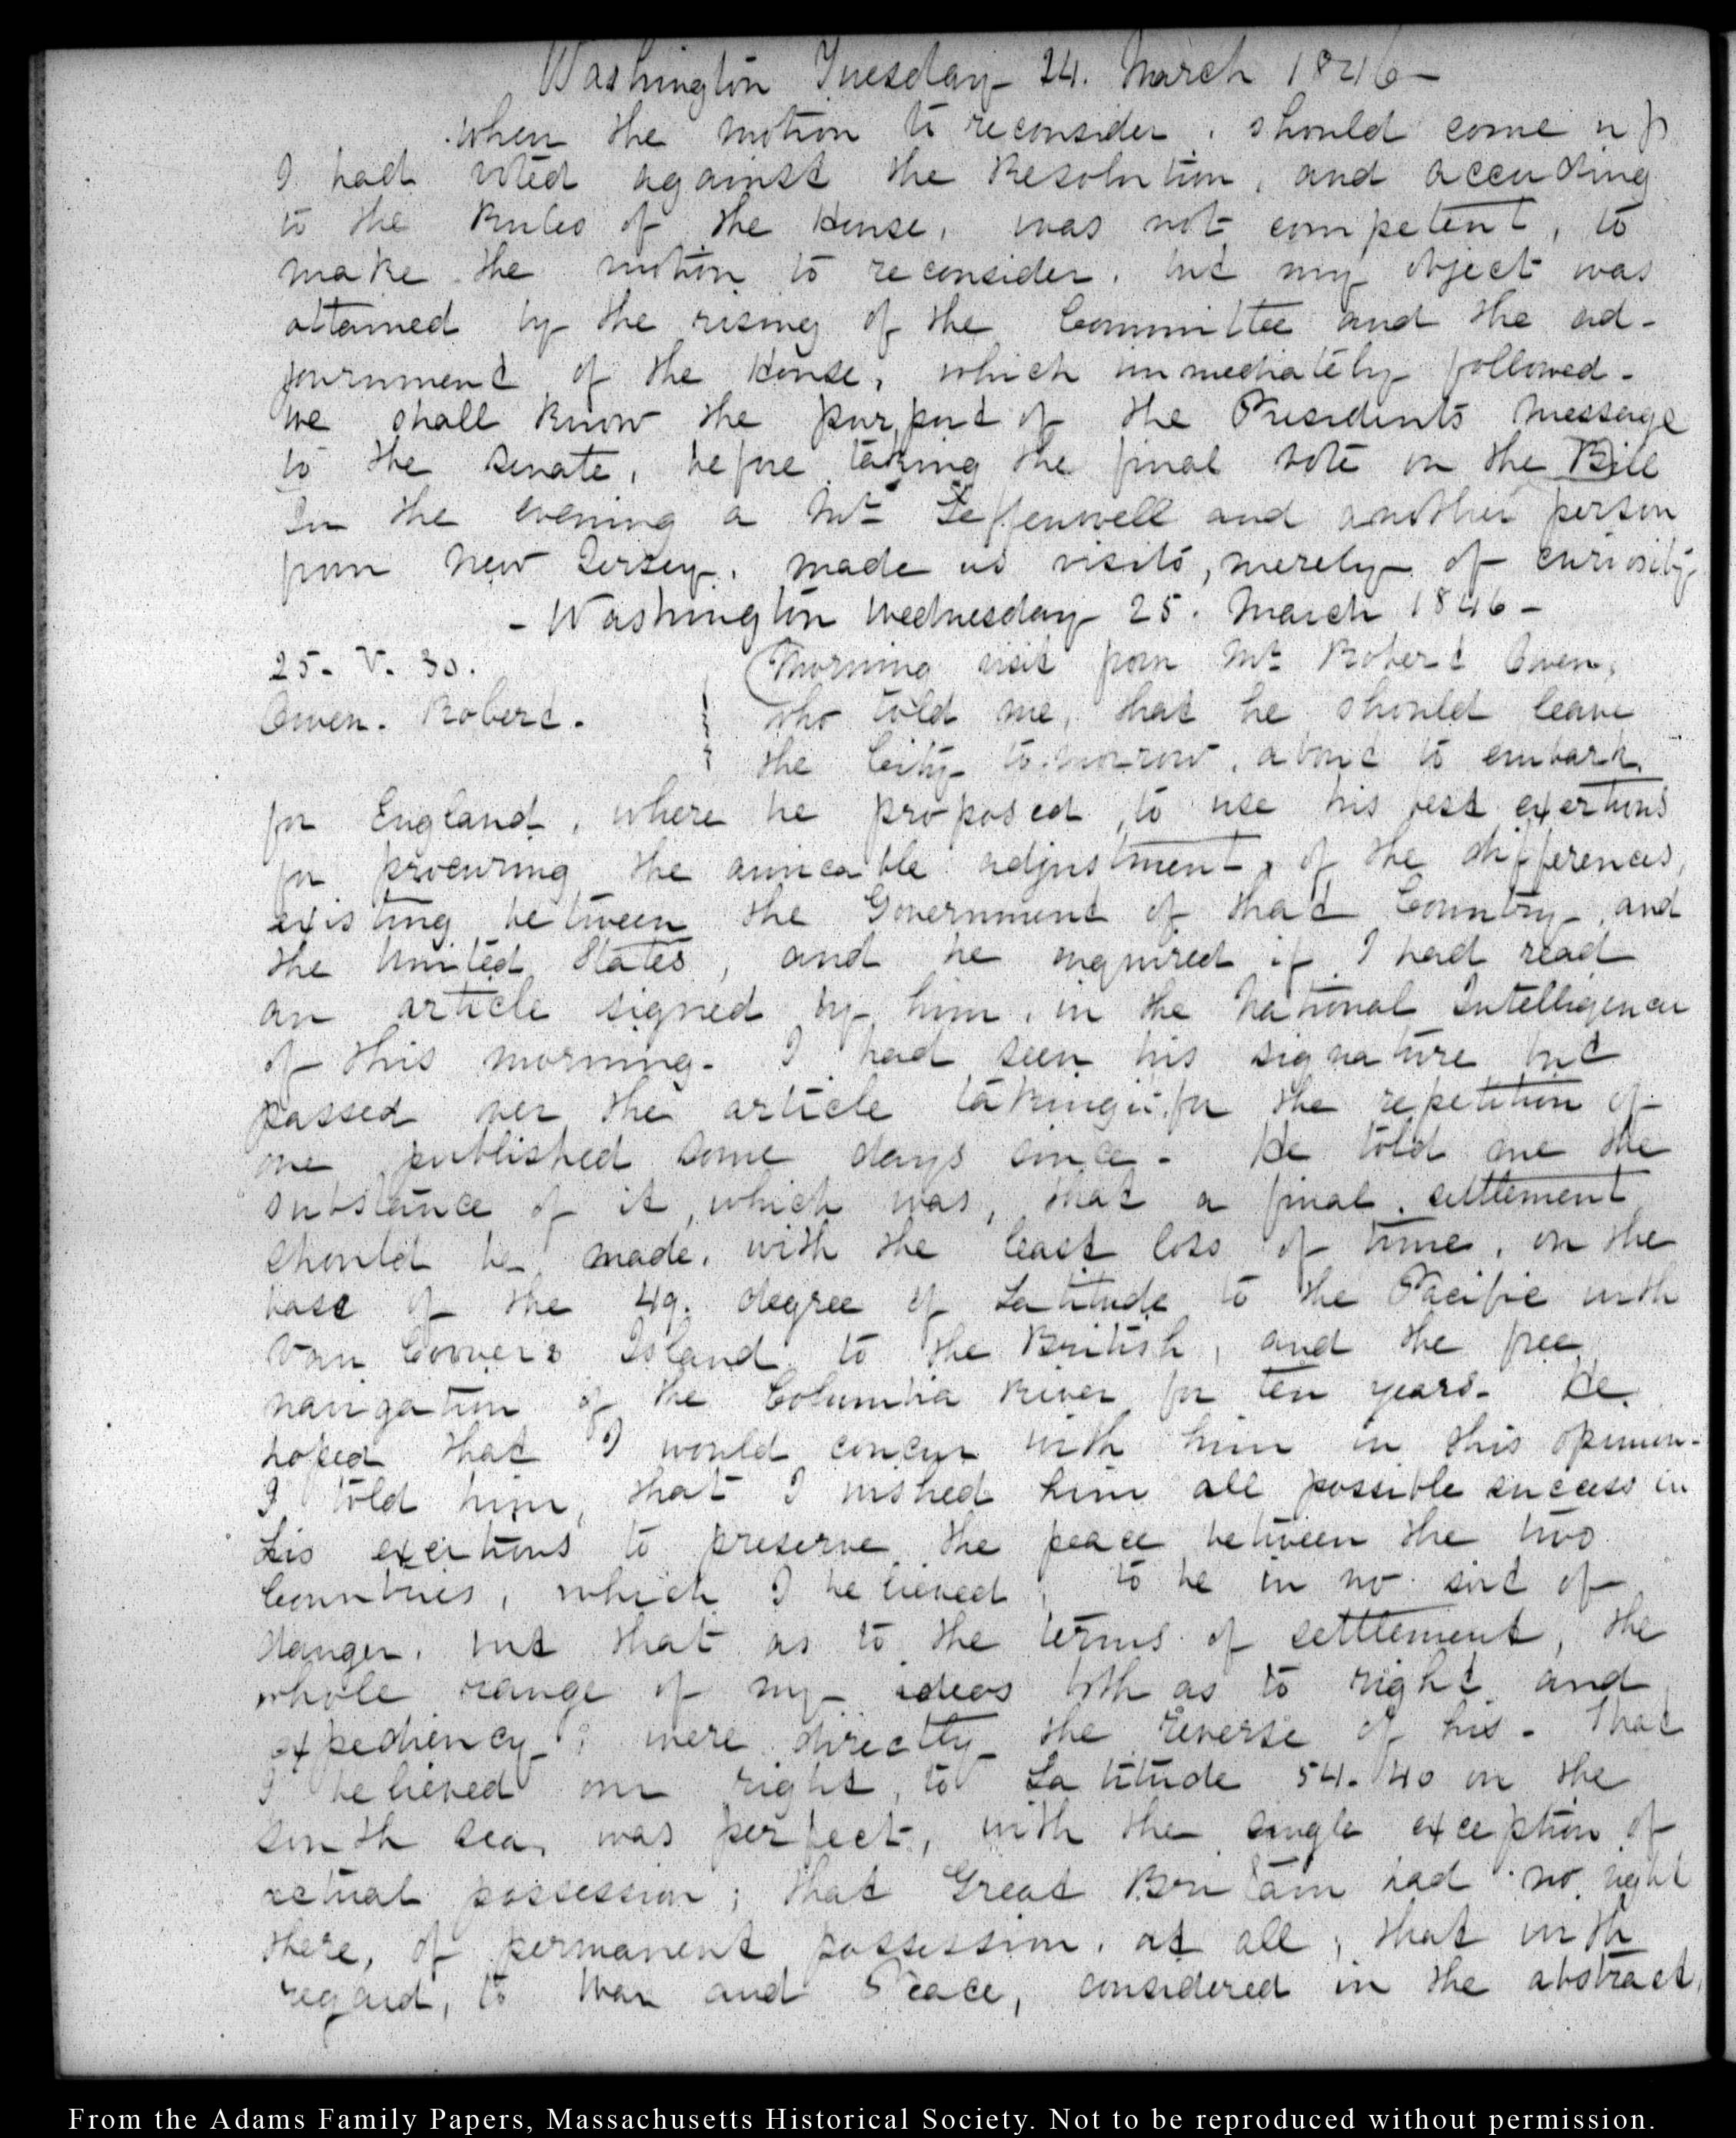 Washington Tuesday 24. March 1846–
when the motion to reconsider, should come up
I had voted against the Resolution, and according
to the Rules of the House, was not competent, to
make the motion to reconsider. but my object was
attained by the rising of the Committee and the ad-
journment of the House, which immediately followed-
we shall know the purport of the Presidents message
to the Senate, before taking the final vote on the Bill
In the evening a Mr. Leffenwell and another person
from New Jersey. made us visits, merely of curiosity-
- Washington Wednesday 25. March 1846 -
25. V. 30.
Owen. Robert.
Morning visit from Mr. Robert Owen,
who told me, that he should leave
the City to-morrow, about to embark
for England, where he proposed to use his best exertions
for procuring the amicable adjustment, of the differences,
existing between the Government of that Country, and
the United States, and he inquired if I had read
an article signed by him, in the National Intelligencer
of this morning- I had seen his signature but
passed over the article taking it for the repetition of
one published some days since- He told me the
substance of it, which was, that a final settlement
should be made, with the least loss of time, on the
base of the 49. degree of Latitude to the Pacific with
Van Couver's Island to the British, and the free
navigation of the Columbia River for ten years- He
hoped that I would concur with him in this opinion-
I told him, that I wished him all possible success in
his exertions to preserve the peace between the two
Countries, which I believed, to be in no sort of
danger. but that as to the terms of settlement, the
whole range of my ideas both as to right and
expediency, were directly the reverse of his- That
I believed our right, to Latitude 54. 40 on the
south sea, was perfect, with the single exception of
actual possession; that Great Britain had no right
there, of permanent possession, at all, that with
regard, to War and Peace, considered in the abstract,
From the Adams Family Papers, Massachusetts Historical Society. Not to be reproduced without permission.